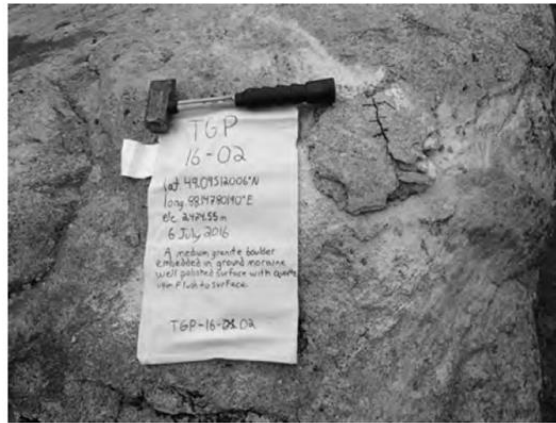 TGP
16-02
lat. 49.09512006°N
long. 88.14780140°E
ele. 2,474.55 m
6 July 2016
A medium granite boulder
embedded in ground moraine
well polished surface with quartz
vein flush to surface.
TGP-16-02